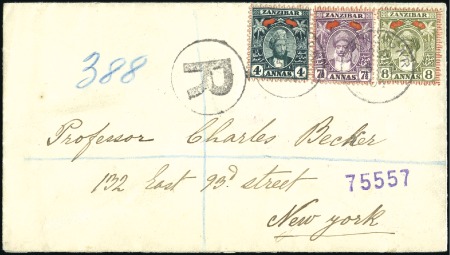 388
R
ZANZIBAR
4 ANNAS 4
ZANZIBAR
7½ ANNAS 7½
ZANZIBAR
8 ANNAS 8
Professor Charles Becker
132 East 93d street
75557
New york